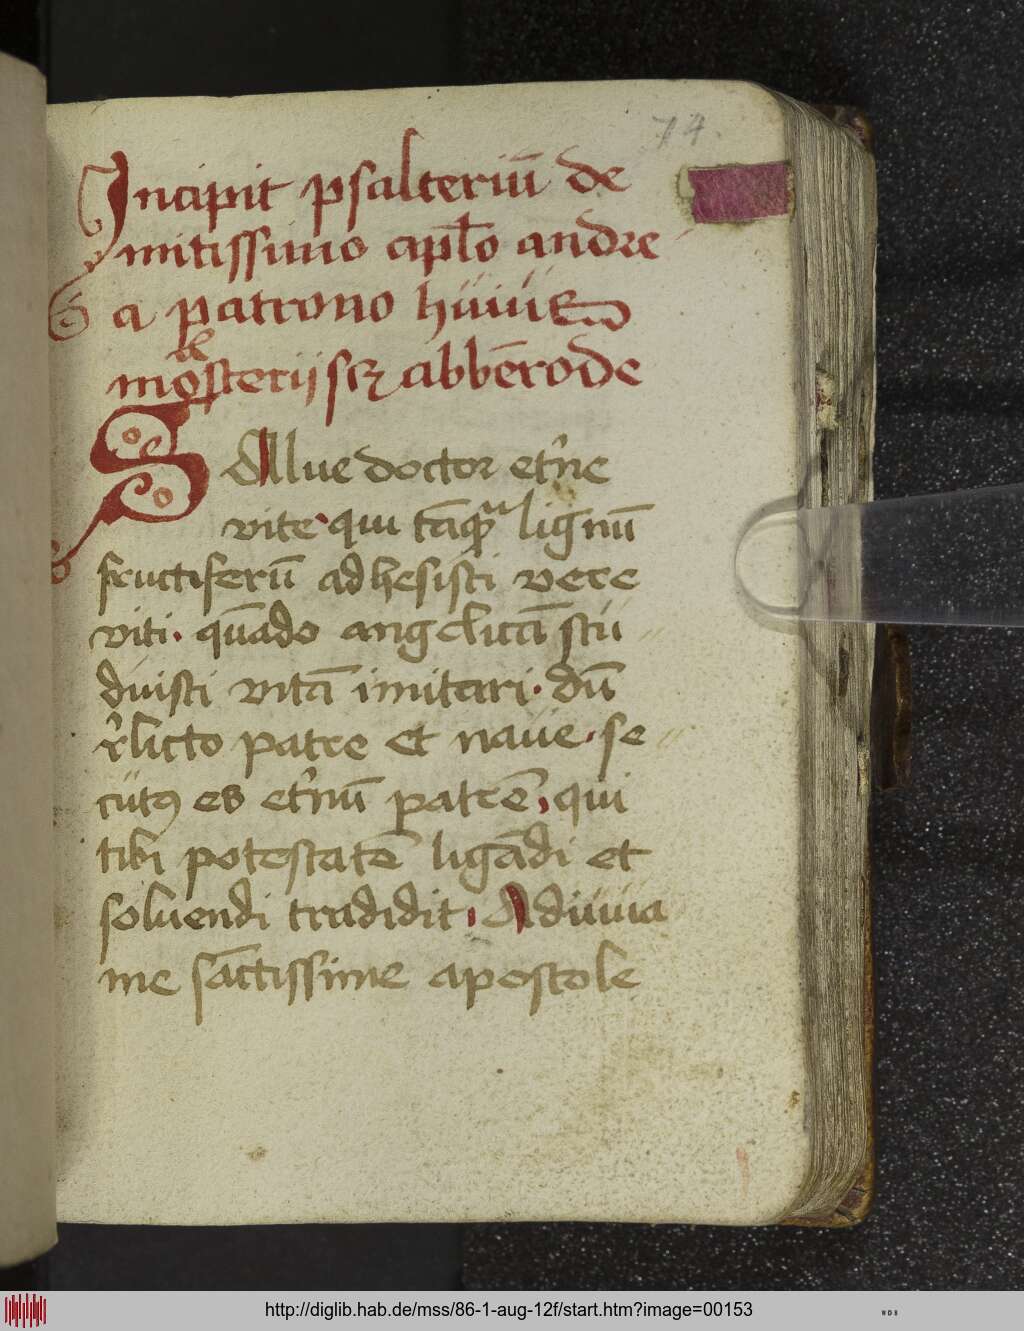 74.
Incipit psalteriū de
mitissimo apl̄o andre
a patrono hüiüs
mo^aesterij scʒ abbērode
SAlue doctor et'ne
vite qui tāqᵃ lignū
fructiferū adhesisti vere
viti. quādo angelicā stü
düisti vitā imitari. dū
r'licto patre et naüe. se
cütꝰ es et'nū patrē. qui
tibi potestatē ligādi et
soluendi tradidit. Adiüua
me sāctissime apostole
http://diglib.hab.de/mss/86-1-aug-12f/start.htm?image=00153